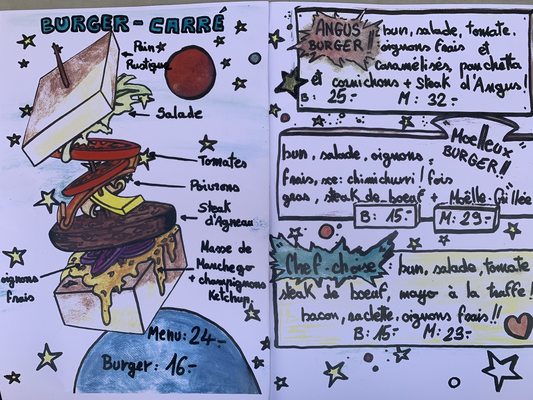 BURGER - CARRÉ
Pain
Rustique
Salade
Tomates
Poivrons
Steak
d'Agneau
oignons
frais
Masse de
Manchego
+ champignons
Ketchup
Menu: 24.-
Burger: 16.-
ANGUS
BURGER!!
bun, salade, tomate,
oignons frais et
caramélisés, panchetta
et cornichons + Steak
d'Angus!
B: 25.- M: 32.-
Moelleux
BURGER!!
bun, salade, oignons
frais, chimichurri! fois
gras, steak de boeuf + Moëlle Grillée
B: 15.- M: 23.-
Chef-choise: bun, salade, tomate
steak de boeuf, mayo à la truffe!
bacon, raclette, oignons frais!!
B: 15.- M: 23.-